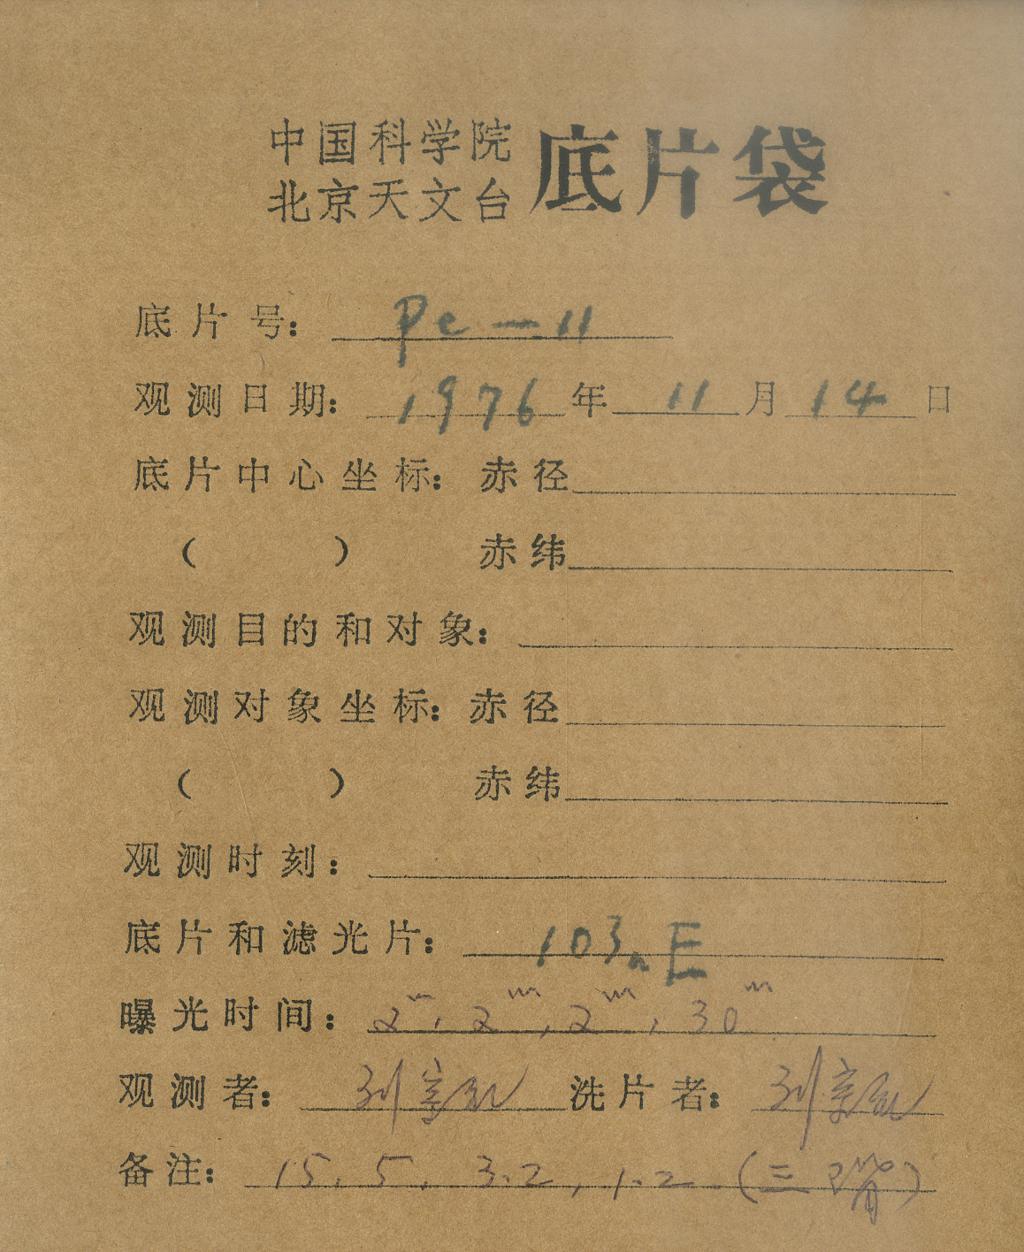 中国科学院
北京天文台 底片袋
底片号： Pc—11
观测日期： 1976 年 11 月 14 日
底片中心坐标： 赤径
（ ） 赤纬
观测目的和对象：
观测对象坐标： 赤径
（ ） 赤纬
观测时刻：
底片和滤光片： 103aE
曝光时间： 2ᵐ, 2ᵐ, 2ᵐ, 30ᵐ
观测者： 刘 洗片者： 刘
备注： 15, 5, 3.2, 1.2 (三